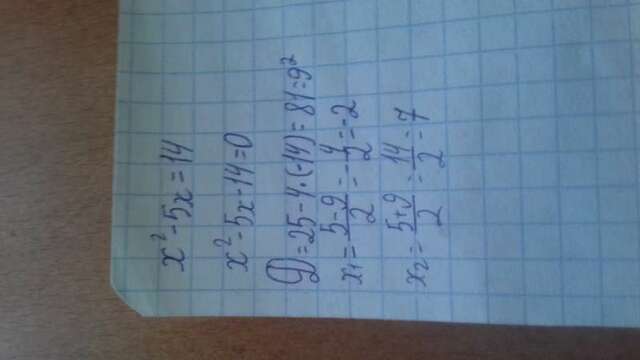 x²-5x=14
x²-5x-14=0
D=25-4·(-14)=81=9²
x₁=(5-9)/2=-4/2=-2
x₂=(5+9)/2=14/2=7